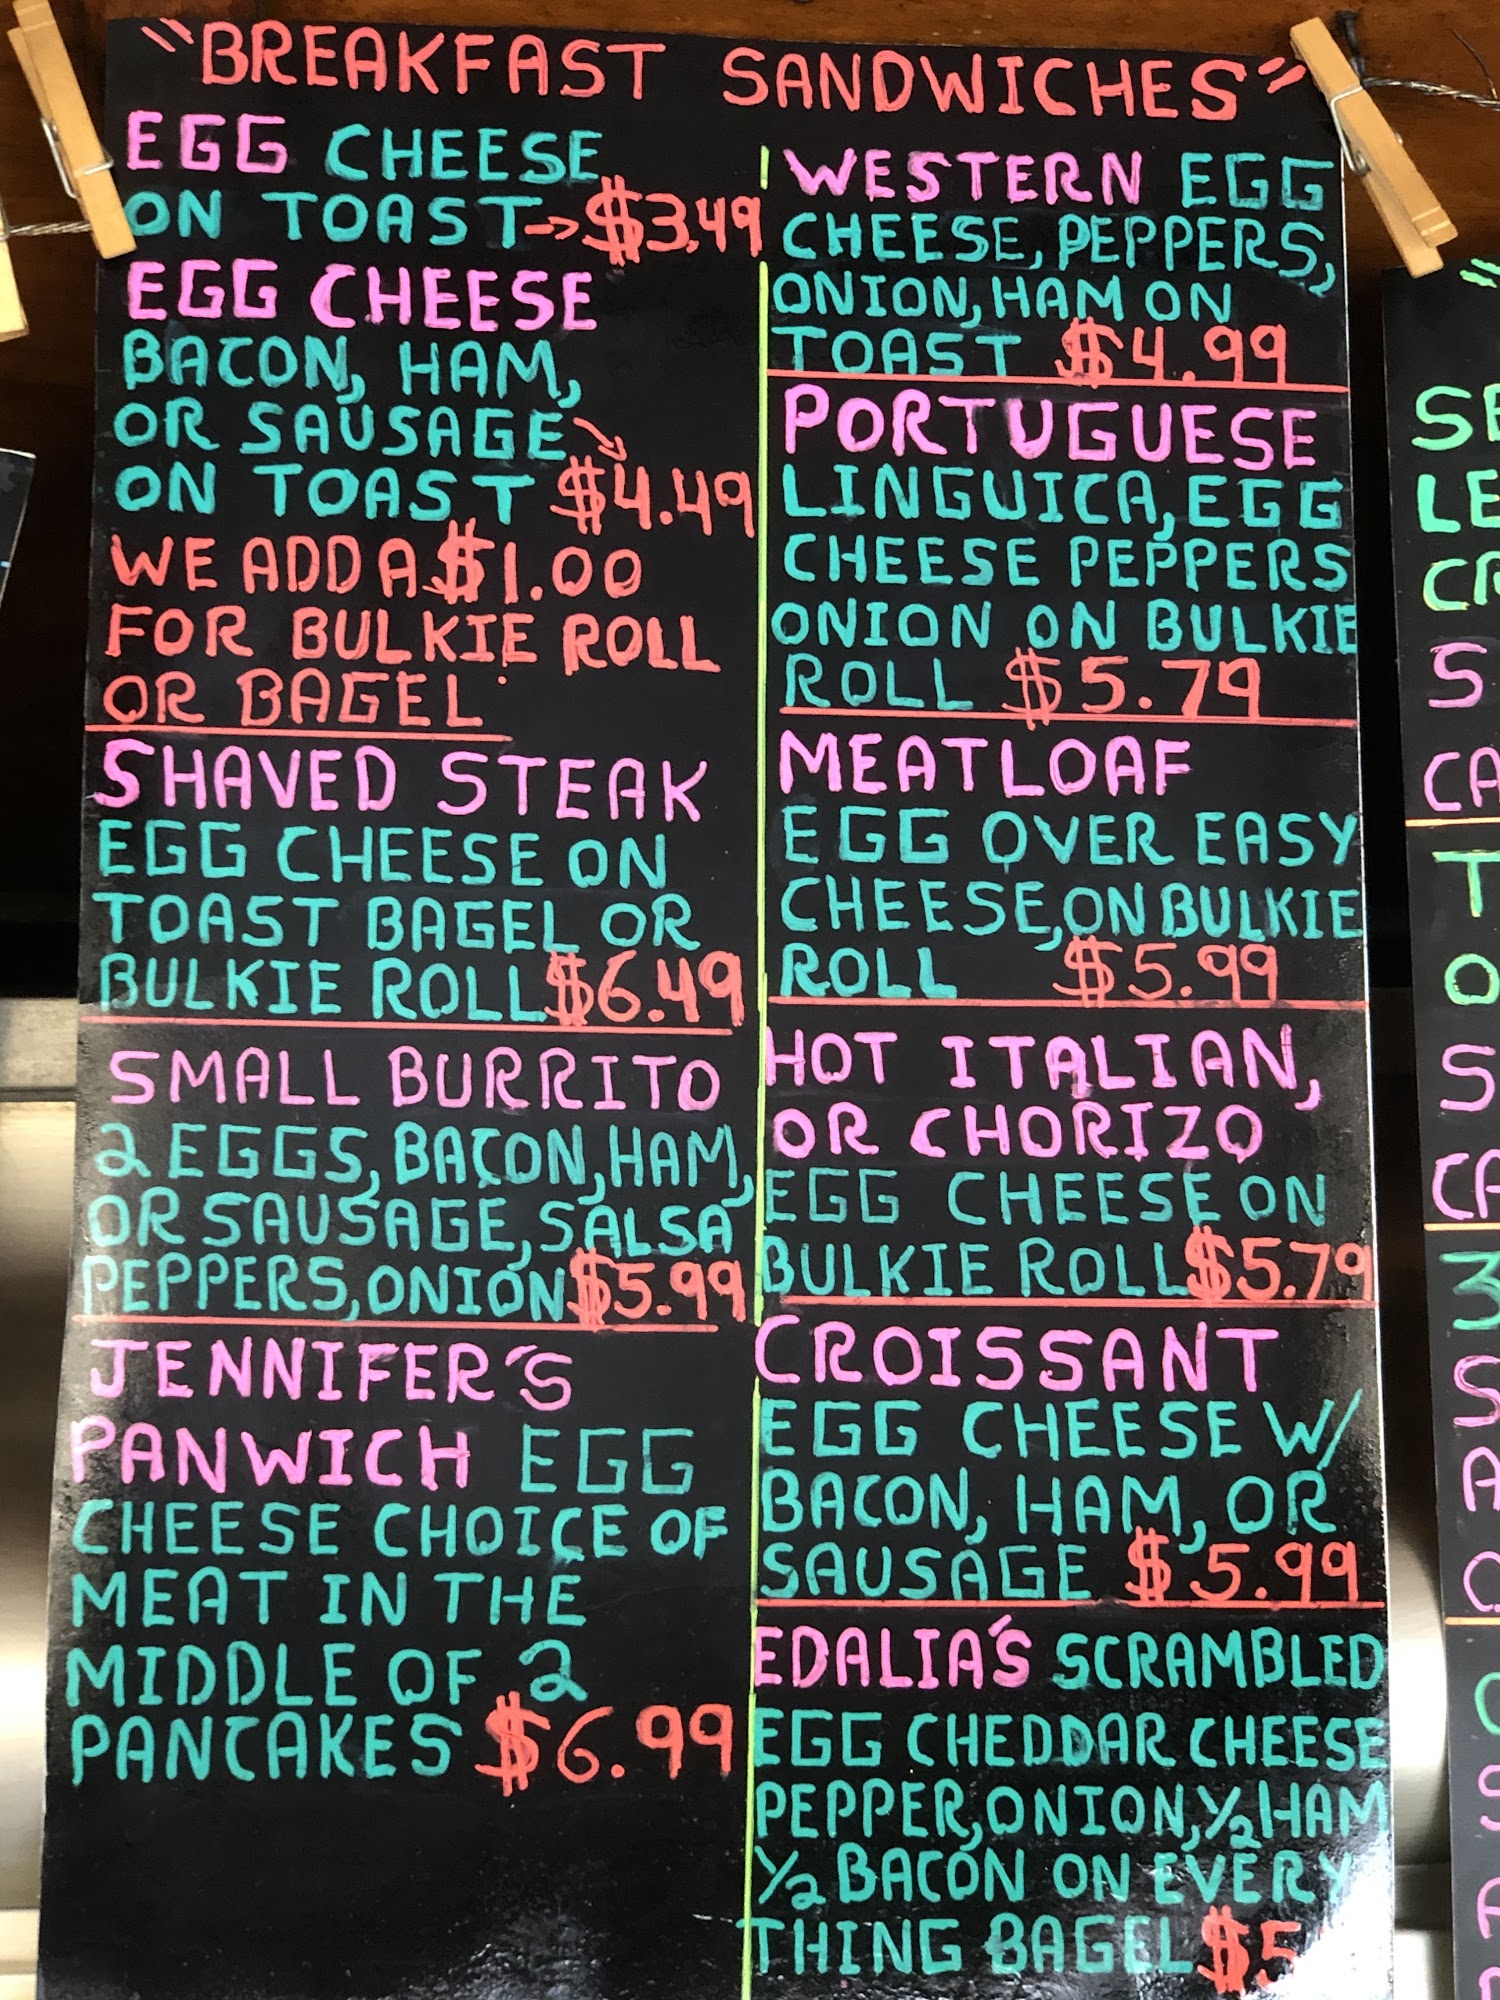 "BREAKFAST SANDWICHES"
EGG CHEESE
ON TOAST→$3.49
EGG CHEESE
BACON, HAM,
OR SAUSAGE
ON TOAST $4.49
WE ADD A $1.00
FOR BULKIE ROLL
OR BAGEL
SHAVED STEAK
EGG CHEESE ON
TOAST BAGEL OR
BULKIE ROLL $6.49
SMALL BURRITO
2 EGGS, BACON, HAM,
OR SAUSAGE, SALSA
PEPPERS, ONION $5.99
JENNIFER'S
PANWICH EGG
CHEESE CHOICE OF
MEAT IN THE
MIDDLE OF 2
PANCAKES $6.99
WESTERN EGG
CHEESE, PEPPERS,
ONION, HAM ON
TOAST $4.99
PORTUGUESE
LINGUICA, EGG
CHEESE PEPPERS
ONION ON BULKIE
ROLL $5.79
MEATLOAF
EGG OVER EASY
CHEESE, ON BULKIE
ROLL $5.99
HOT ITALIAN,
OR CHORIZO
EGG CHEESE ON
BULKIE ROLL $5.79
CROISSANT
EGG CHEESE W/
BACON, HAM, OR
SAUSAGE $5.99
EDALIA'S SCRAMBLED
EGG CHEDDAR CHEESE
PEPPER, ONION, 1/2 HAM
1/2 BACON ON EVERY
THING BAGEL $5